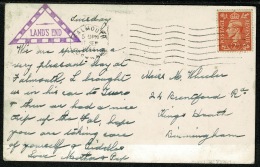 LAND'S END
Tuesday
We are spending a
very pleasant Day at
Falmouth, L. brought
us in his car to Truro
& then we had a nice
trip up the Fal, hope
you are taking care
of yourself &
Love
Miss M. Wheeler
24 Brentford Rd
Kings Heath
Birmingham